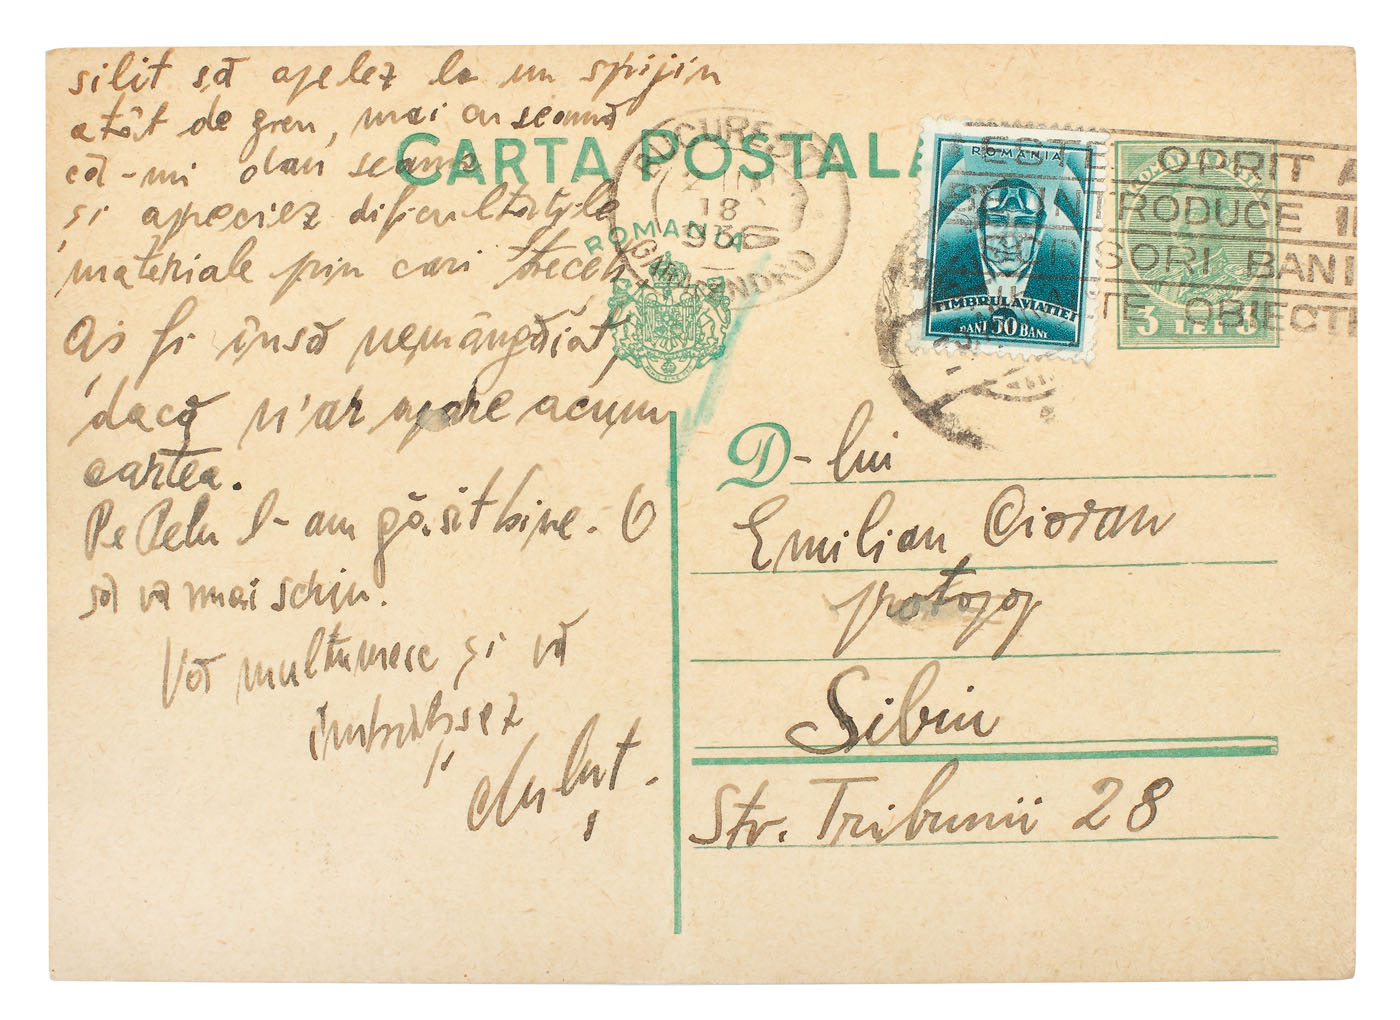 silit să apelez la un spijin
atât de greu, mai cu seamă
că-mi dau seama
și apeciez dificultățile
materiale prin cari treceți.
Aș fi însă nemângăiat,
dacă n'ar apare acum
cartea.
Pe Relu l-am găsit bine. O
să vă mai schiu.
Vă mulțumesc și vă
îmbrățișez
Luț.
CARTA POSTALA
ROMANIA
BUCUREȘTI
18
936
GARA NORD
ROMANIA
TIMBRUL AVIAȚIEI
BANI 50 BANI
ESTE OPRIT A
INTRODUCE IN
SCRISORI BANI
OBIECTE
3 LEI 3
D-lui
Emilian Cioran
protopop
Sibiu
Str. Tribunii 28